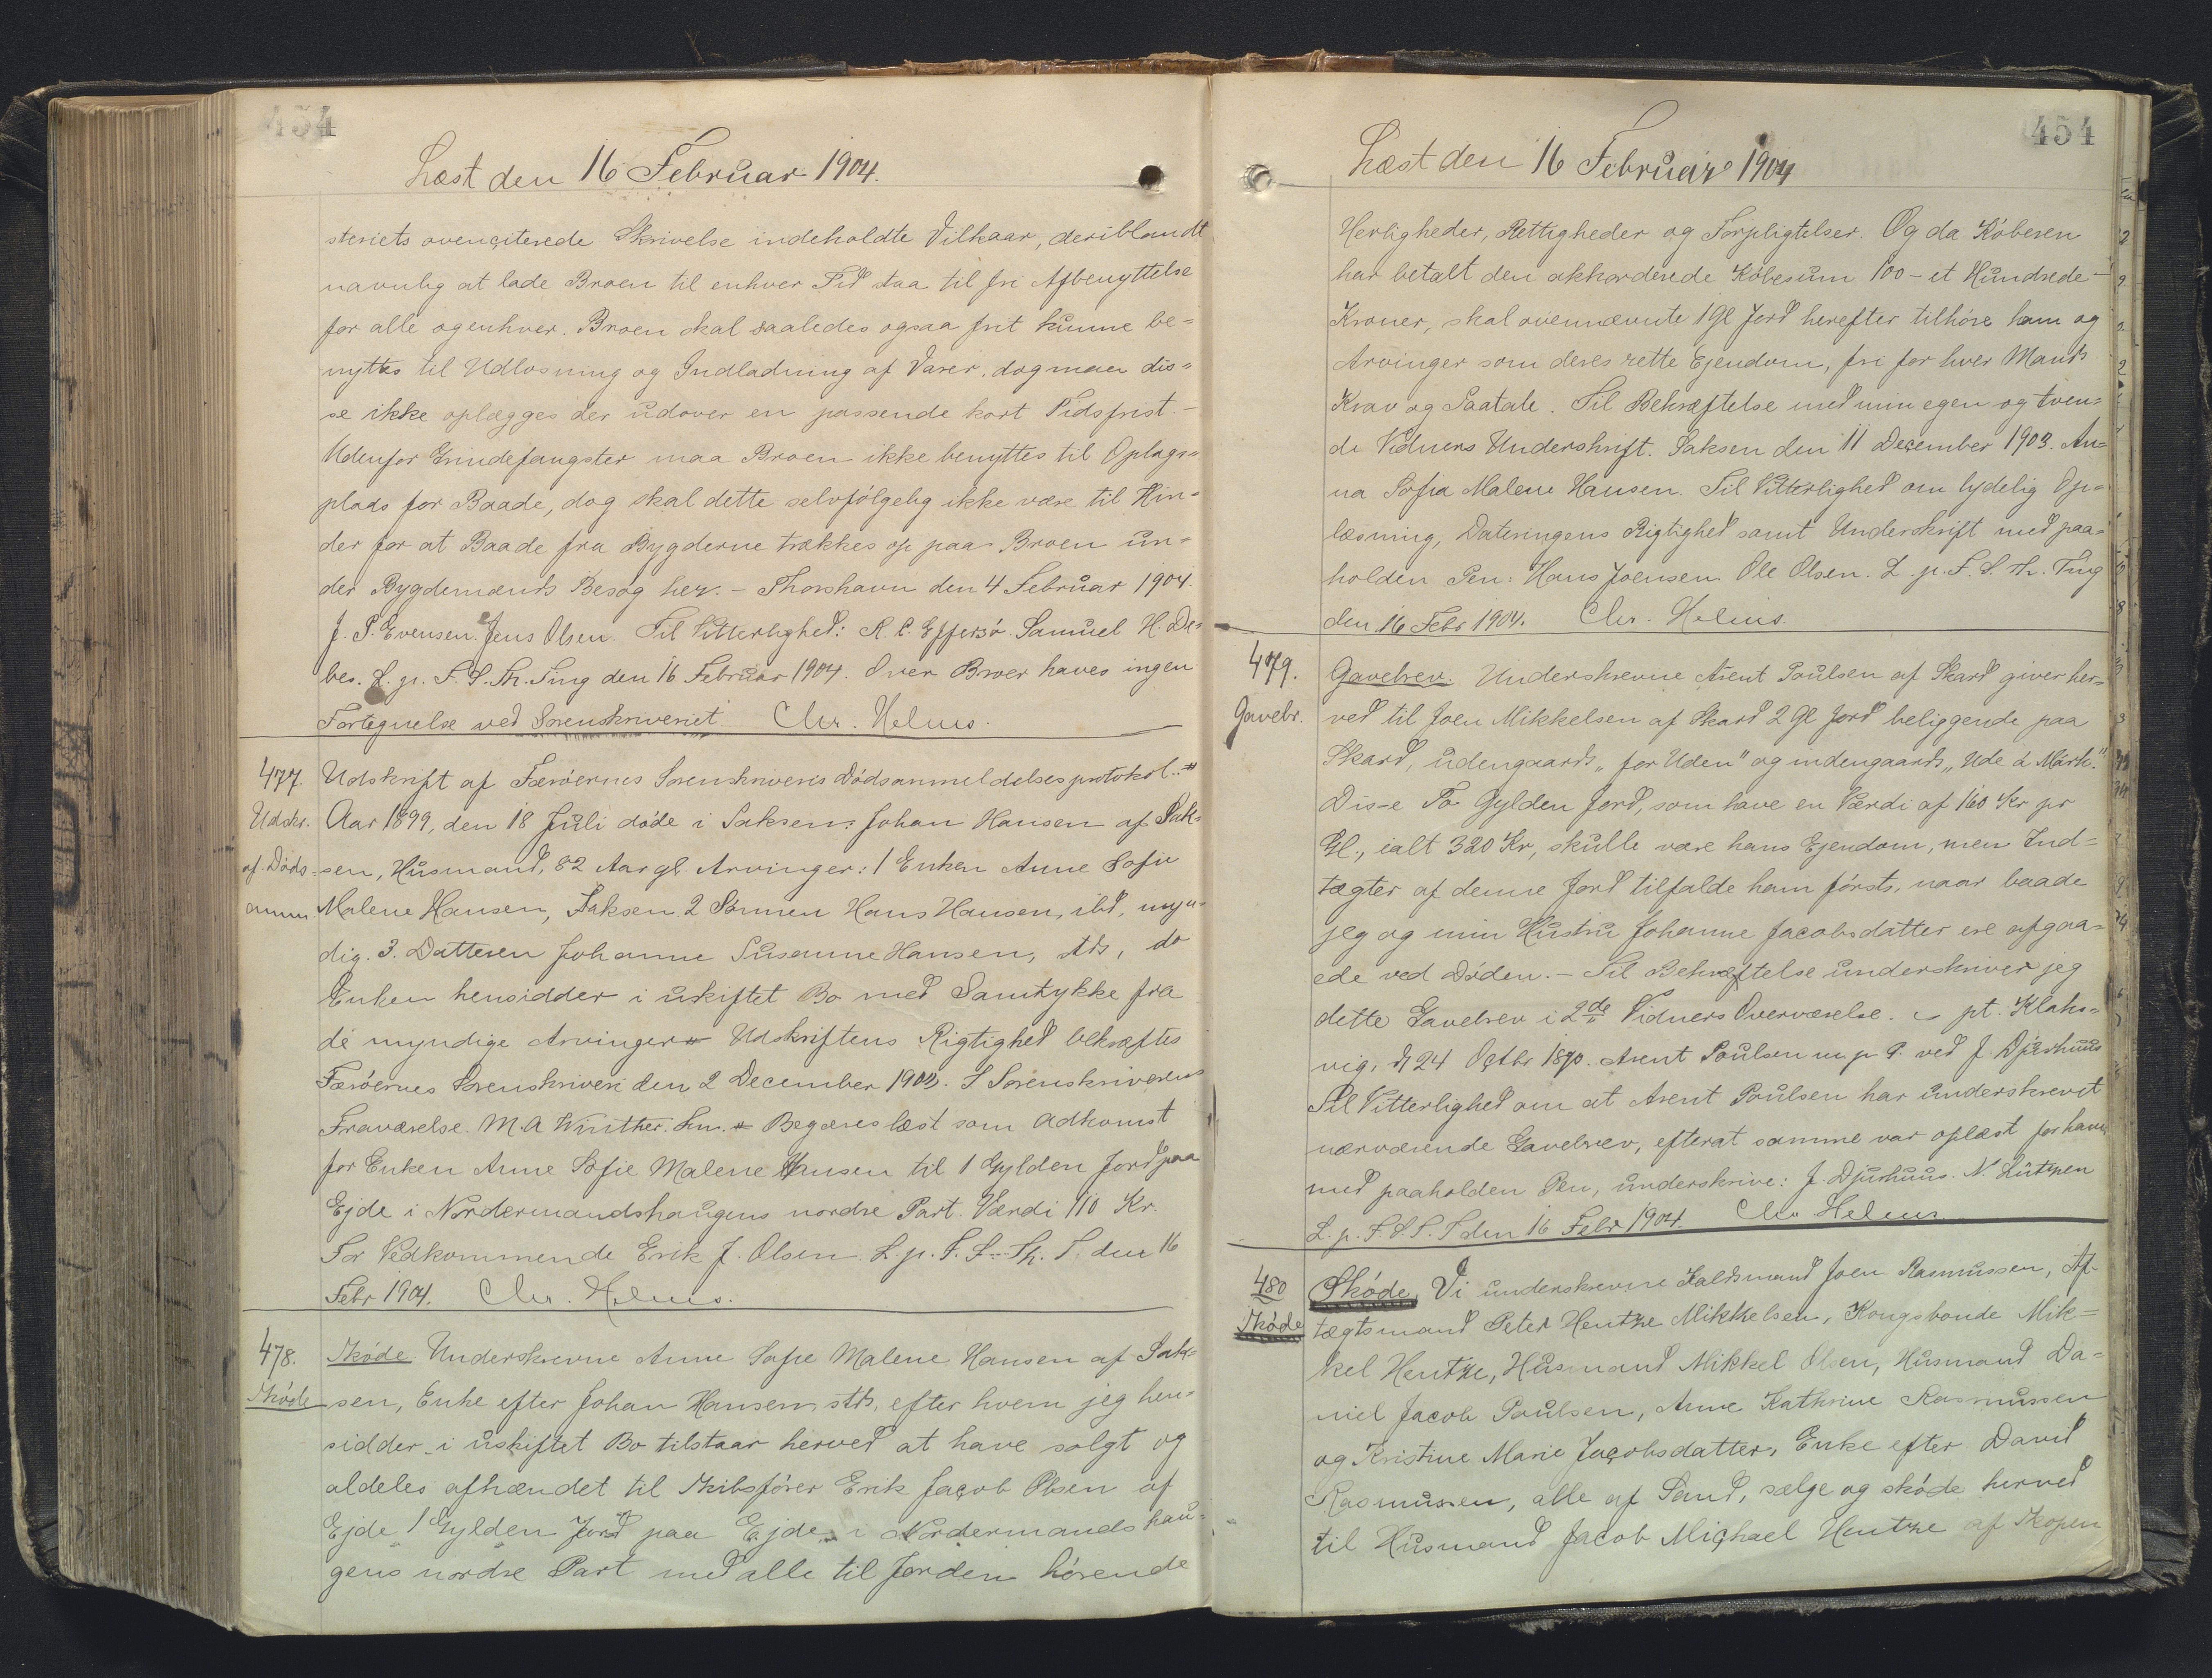 454
Læst den 16 Februar 1904.
steriets ovenciterede Skrivelse indeholdte Vilkaar, deriblandt
navnlig at lade Broen til enhver Tid staa til fri Afbenyttelse
for alle ogenhver. Broen skal saaledes ogsaa frit kunne be=
nyttes til Udlosning og Indladning af Varer, dog maa dis=
se ikke oplægges der udover en passende kort Tidsfrist.-
Udenfor Grindefangster maa Broen ikke benyttes til Oplags=
plads for Baade, dog skal dette selvfölgelig ikke være til Hin=
der for at Baade fra Bygderne trækkes op paa Broen un=
der Bygdemænds Besøg her. - Thorshavn den 4 Februar 1904.
J. P. Evensen. Jens Olsen. Til Vitterlighed: R. C. Effersö. Samuel H. De=
bes. L. p. F. S. Th. Ting den 16 Februar 1904. Over Broer haves ingen
Fortegnelse ved Sorenskriveriet Chr. Helms.
477. Udskrift af Færöernes Sorenskriveris Dödsanmeldelsesprotokol.
Udskr. Aar 1899, den 18 Juli döde i Saksen: Johan Hansen af Sak=
af. Døds- sen, Husmand, 82 Aar gl. Arvinger: 1 Enken Anne Sofie
anm Malene Hansen, Saksen. 2 Sönnen Hans Hansen, ibd, myn-
dig. 3. Datteren Johanne Susanne Hansen, stds, do
Enken hensidder i uskiftet Bo med Samtykke fra
de myndige Arvinger Udskriftens Rigtighed bekræftes
Færöernes Sorenskriveri den 2 December 1903. I Sorenskriverens
Fraværelse. M. A. Winther. fm. Begæres læst som Adkomst
for Enken Anne Sofie Malene Hansen til 1 Gylden Jord paa
Ejde i Nordermandshaugens nordre Part. Værdi 110 Kr.
For Vedkommende Erik J. Olsen. L. p. F. S. Th. T. den 16
Febr 1904. Chr. Helms.
478. Sköde Underskrevne Anne Sofie Malene Hansen af Sak=
Sköde sen, Enke efter Johan Hansen stds, efter hvem jeg hen=
sidder i uskiftet Bo tilstaar herved at have solgt og
aldeles afhændet til Skibsförer Erik Jacob Olsen af
Ejde 1 Gylden Jord paa Ejde i Nordermandshau=
gens nordre Part med alle til Jorden hörende
454
Læst den 16 Februar 1904
Herligheder, Rettigheder og Forpligtelser. Og da Köberen
har betalt den akkorderede Köbesum 100 - et Hundrede -
Kroner, skal ovennævnte 1 Gl Jord herefter tilhöre ham og
Arvinger som deres rette Ejendom, fri for hver Mands
Krav og Paatale. Til Bekræftelse med min egen og tven=
de Vidners Underskrift. Saksen den 11 December 1903. An=
na Sofia Malene Hansen. Til Vitterlighed om lydelig Op=
læsning, Dateringens Rigtighed samt Underskrift med paa=
holden Pen: Hans Joensen Ole Olsen. L. p. F. S. Th. Ting
den 16 Febr 1904. Chr. Helms.
479. Gavebrev. Underskrevne Arent Poulsen af Skard giver her=
Gavebr. ved til Joen Mikkelsen af Skard 2 Gl Jord beliggende paa
Skard, udengaards „for Uden" og indengaards „Ude á Mark."
Disse To Gylden Jord, som have en Værdi af 160 Kr pr
Gl., ialt 320 Kr, skulle være hans Ejendom, men Ind=
tægter af denne Jord tilfalde ham förts, naar baade
jeg og min Hustru Johanne Jacobsdatter ere afgaa=
ede ved Döden. - Til Bekræftelse underskriver jeg
dette Gavebrev i 2de Vidners Overværelse. - pt. Klaks=
vig, d 24 Octbr 1890. Arent Poulsen m. p. P. ved J. Djurhuus
Til Vitterlighed om at Arent Poulsen har underskrevet
nærværende Gavebrev, efterat samme var oplæst for ham,
med paaholden Pen, underskrive: J. Djurhuus. N. Lützen
L. p. F. S. T. T den 16 Febr 1904. Chr Helms
480 Sköde. Vi underskrevne Faldsmand Joen Rasmussen, Af-
Sköde tægtsmand Peter Hentze Mikkelsen, Kongsbonde Mik=
kel Hentze, Husmand Mikkel Olsen, Husmand Da=
niel Jacob Poulsen, Anne Kathrine Rasmussen
og Kristine Marie Jacobsdatter, Enke efter David
Rasmussen, alle af Sand, sælge og sköde herved
til Husmand Jacob Michael Hentze af Skopen